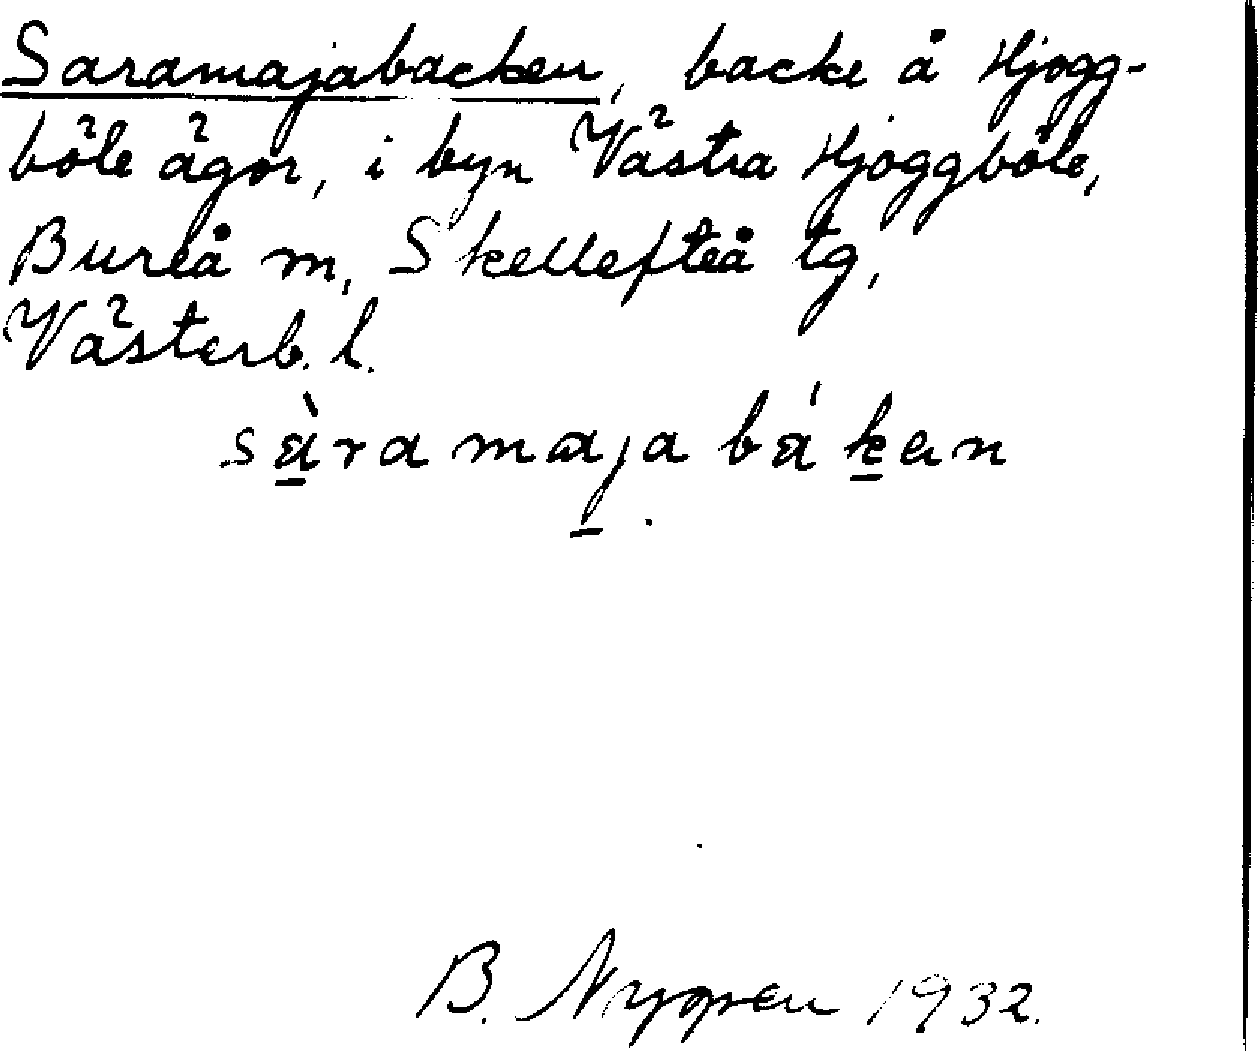 Saramajabacken, backe å Hjogg-
böle ägor, i byn Västra Hjoggböle,
Bureå m, Skellefteå tg,
Västerb. l.
sàramaja báken
B. Nygren 1932.